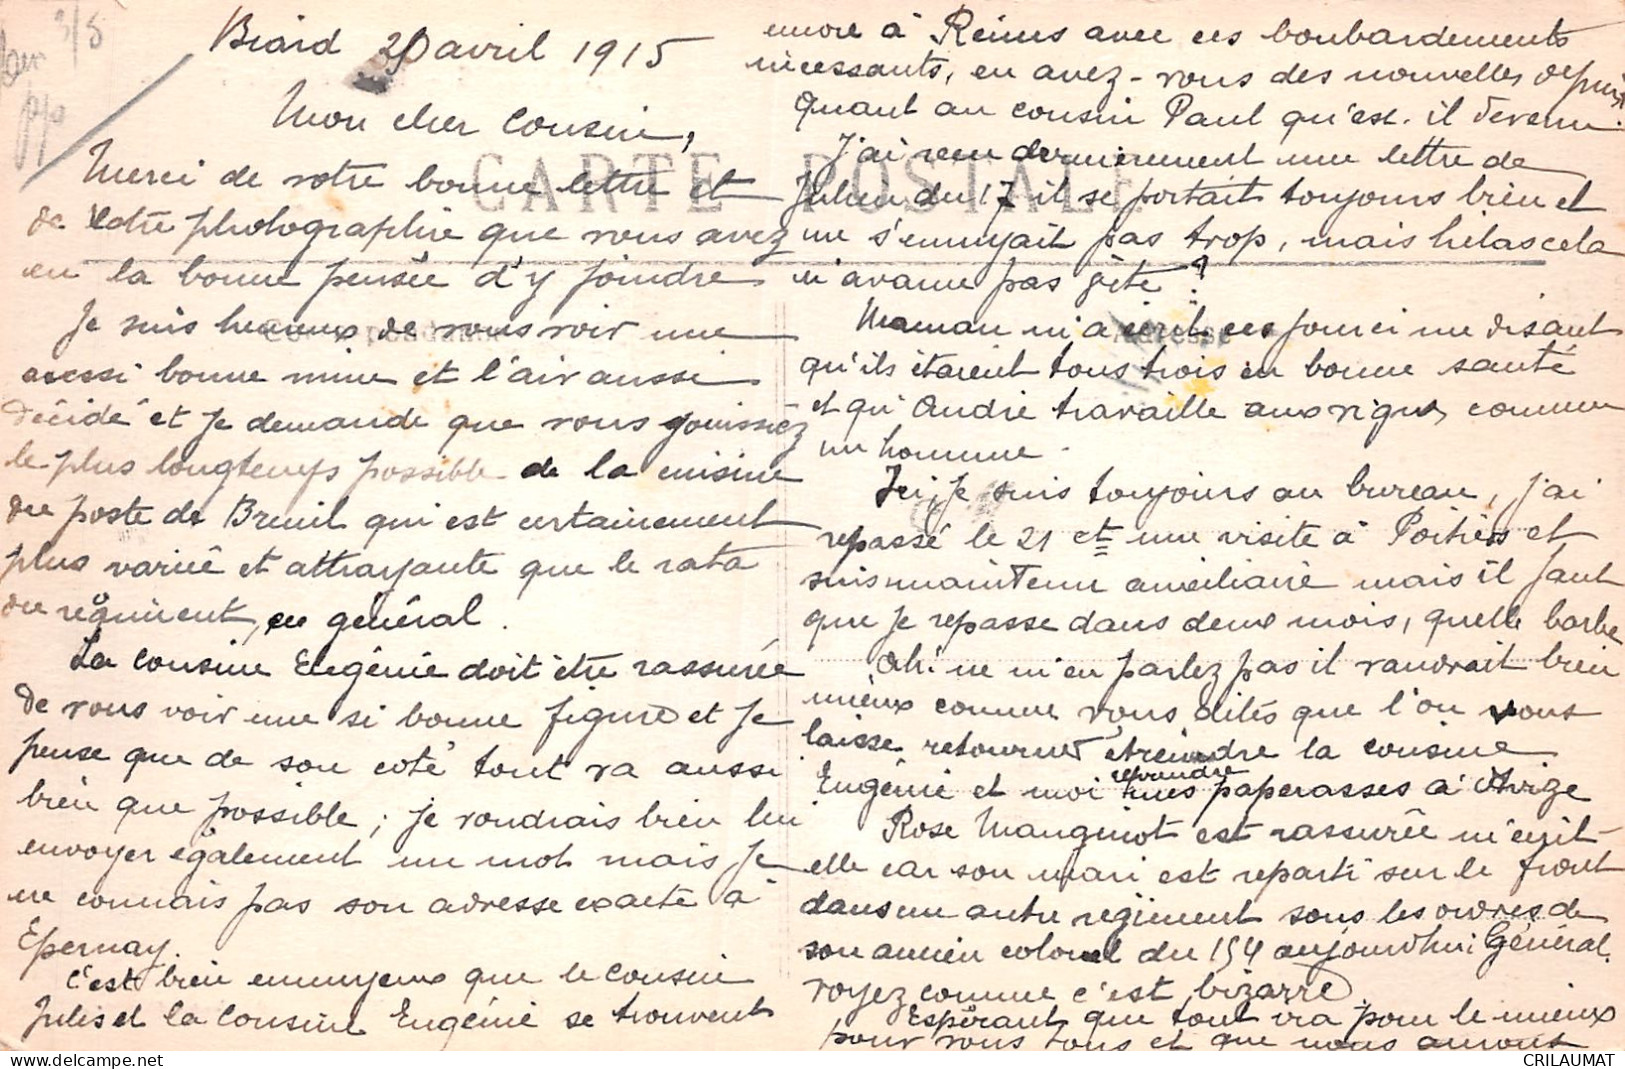 Biard 20 avril 1915
Mon cher Cousin,
Merci de votre bonne lettre et
de votre photographie que vous avez
eu la bonne pensée d'y joindre
Je suis heureux de vous voir une
aussi bonne mine et l'air aussi
décidé et je demande que vous jouissiez
le plus longtemps possible de la cuisine
du poste de Breuil qui est certainement
plus variée et attrayante que le rata
du régiment, en général.
La cousine Eugénie doit être rassurée
de vous voir une si bonne figure et je
pense que de son coté tout va aussi
bien que possible; je voudrais bien lui
envoyer également un mot mais je
ne connais pas son adresse exacte à
Epernay.
C'est bien ennuyeux que le cousin
Jules et la Cousine Eugénie se trouvent
encore à Reims avec ces bombardements
incessants, en avez-vous des nouvelles depuis
Quant au cousin Paul qu'est-il devenu.
J'ai reçu dernièrement une lettre de
Julien du 17 il se portait toujours bien et
ne s'ennuyait pas trop, mais hélas cela
n'avance pas vite!
Maman m'a écrit ces jours ci me disant
qu'ils étaient tous trois en bonne santé
et qu'André travaille aux vignes comme
un homme.
Ici, je suis toujours au bureau, j'ai
repassé le 21 ct une visite à Poitiers et
suis maintenu auxiliaire mais il faut
que je repasse dans deux mois, quelle barbe
Ah! ne m'en parlez pas il vaudrait bien
mieux comme vous dites que l'on vous
laisse retourner étreindre la cousine
Eugénie et moi reprendre mes paperasses à Avize
Rose Mauguinot est rassurée m'écrit-
elle car son mari est reparti sur le front
dans un autre régiment sous les ordres de
son ancien colonel du 154 aujourd'hui Général.
voyez comme c'est bizarre
Espérant que tout ira pour le mieux
pour vous tous et que nous aurons
CARTE POSTALE
Correspondance
Adresse
CRILAUMAT